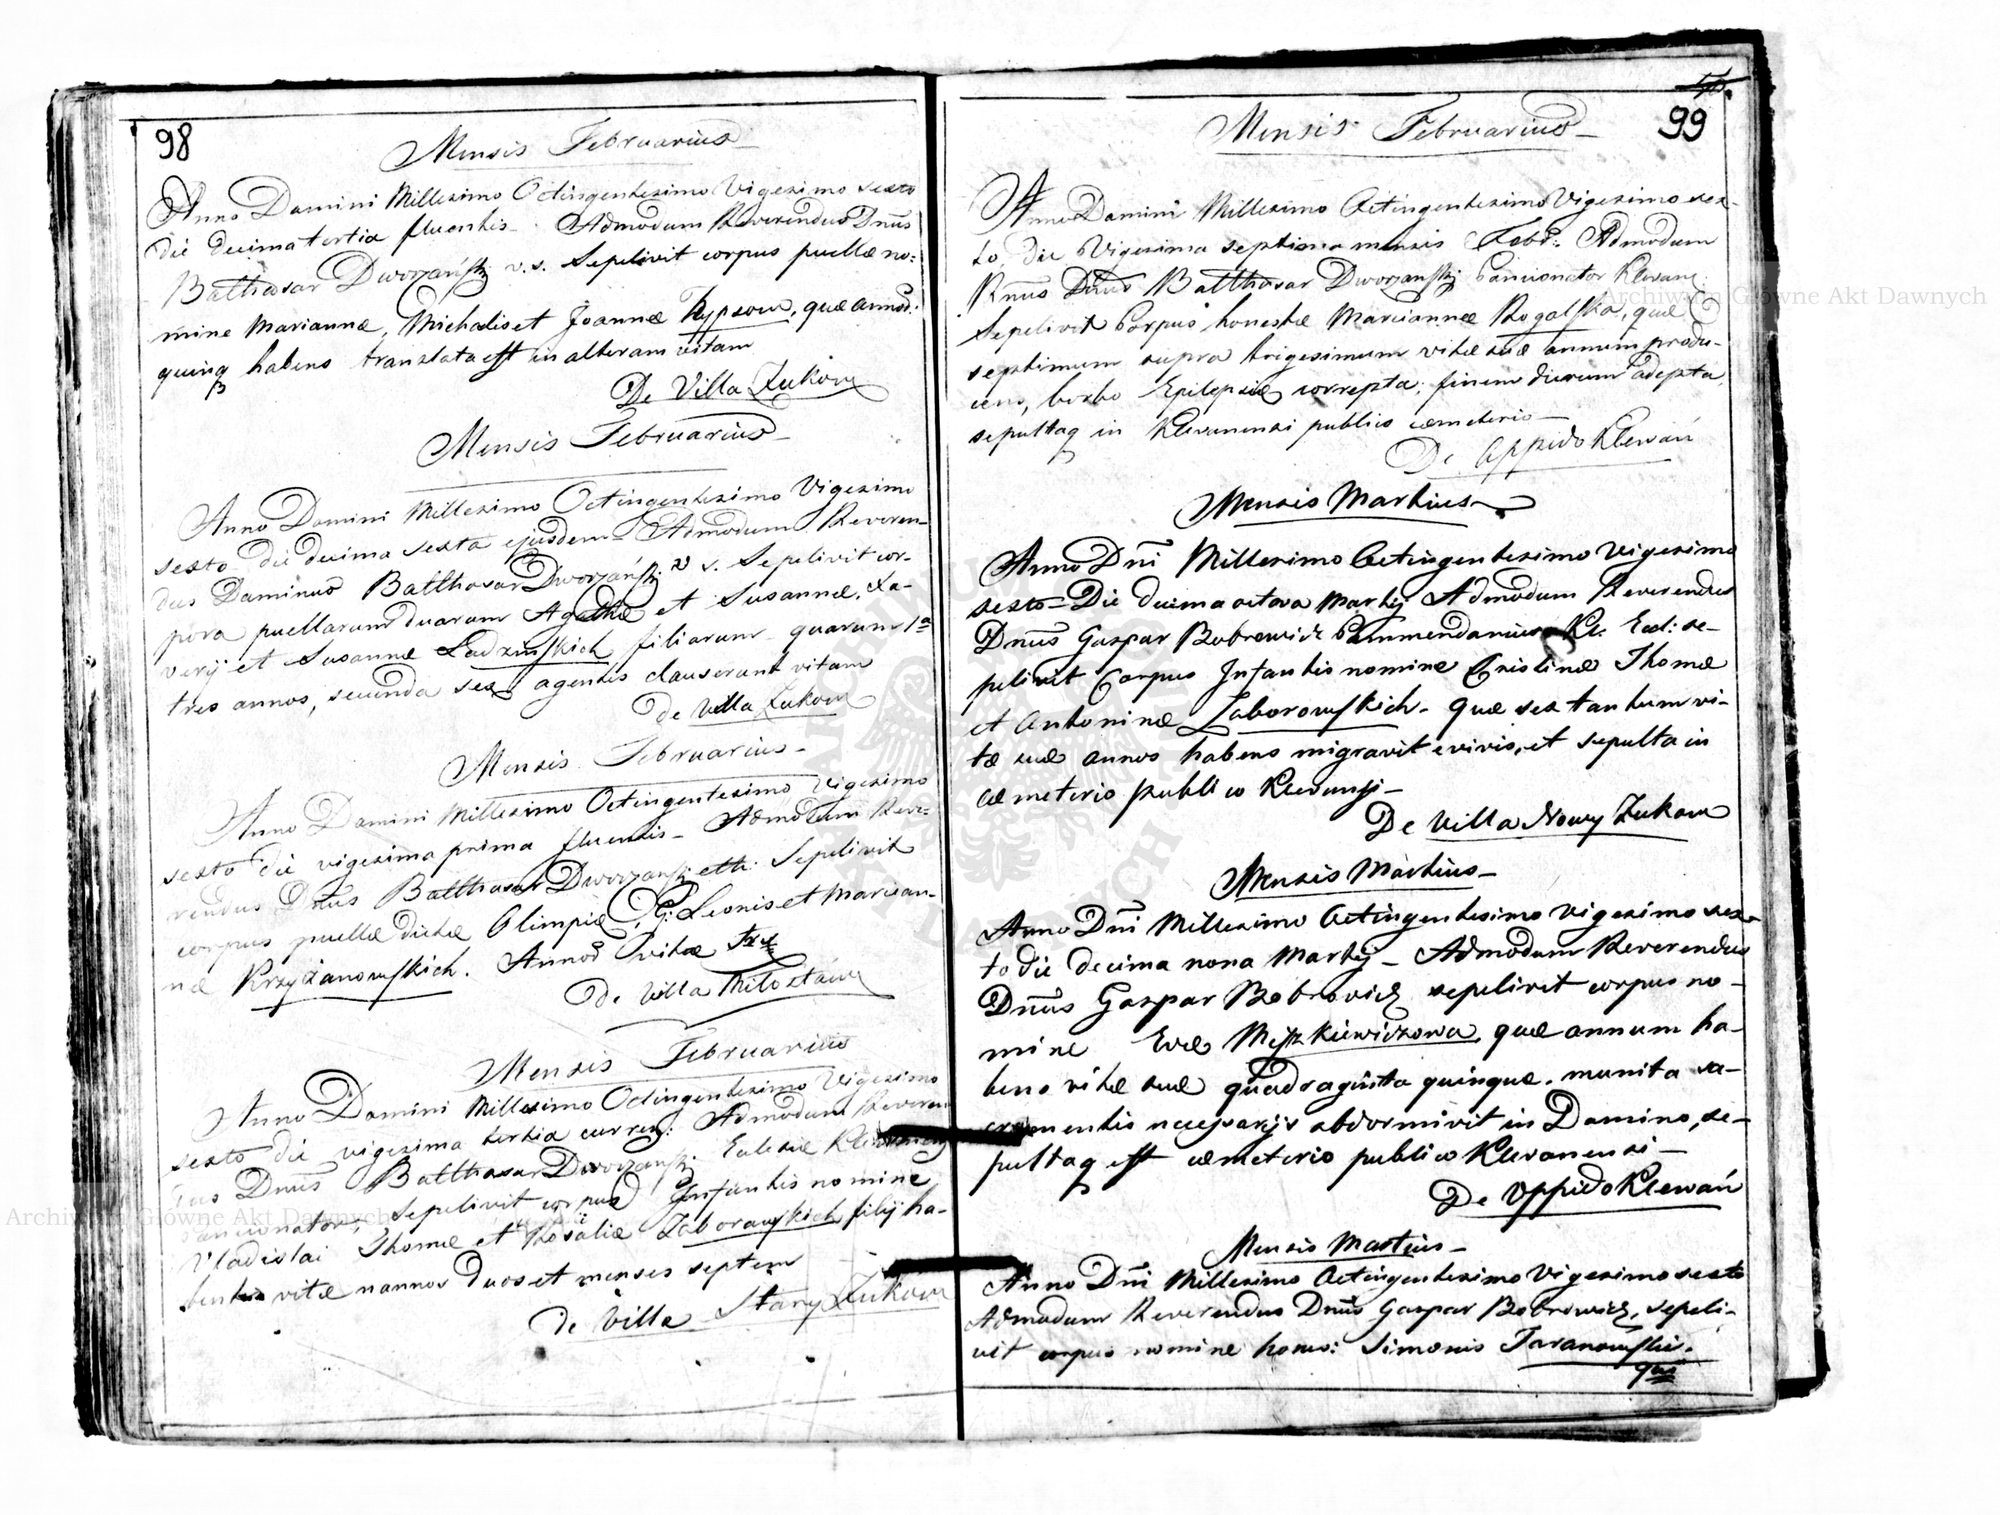 98
Mensis Februarius
Anno Domini Millesimo Octingentesimo Vigesimo sexto
die decima tertia fluentis Admodum Reverendus Dnus
Balthasar Dworzański v. s. Sepelivit corpus puellæ no:
mine Mariannæ, Michalis et Joannæ, quæ annos
quinq habens translata est in alteram vitam
De Villa Zukow
Mensis Februarius
Anno Domini Millesimo Octingentesimo Vigesimo
sexto die decima sexta ejusdem Admodum Reveren-
dus Dominus Balthasar Dworzański v. s. Sepelivit cor-
pora puellarum duarum Agathæ et Susannæ, Xa-
verij et Susannæ Ladzinskich filiarum quarum 1a
tres annos, secunda sex agentes clauserant vitam
de Villa Zukow
Mensis Februarius
Anno Domini Millesimo Octingentesimo Vigesimo
sexto die vigesima prima fluentis Admodum Reve-
rendus Dnus Balthasar Dworzański Sepelivit
corpus puellæ dictæ Olimpiæ, G: Leonis et Marian-
næ Krzyżanowskich. Annos vitæ
De Villa
Mensis Februarius
Anno Domini Millesimo Octingentesimo Vigesimo
sexto die vigesima tertia curren: Admodum Reveren
dus Dnus Balthasar Dworzański
Sepelivit corpus Infantis nomine
Vladislai Thomæ et Rosaliæ Zaborowskich filij ha-
bentis vitæ annos duos et menses septem
de Villa Stary Zukow
99
Mensis Februarius
Anno Domini Millesimo Octingentesimo Vigesimo sex-
to, die Vigesima septima mensis Febr: Admodum
Rnus Dnus Balthasar Dworzański Concionator Klewan:
Sepelivit Corpus honestæ Mariannæ Rogalska, quæ
septimum supra trigesimum vitæ suæ annum produ-
cens, morbo Epilepsiæ correpta, finem dierum adepta
sepultaq in Klewanensi publico cæmeterio
De Oppido Klewań
Mensis Martius
Anno Dni Millesimo Octingentesimo Vigesimo
sexto Die decima octava Martij Admodum Reverendus
Dnus Gaspar Bobrowicz Commendarius Kl. Eccl: se-
pelivit Corpus Infantis nomine Cristinæ Thomæ
et Antoninæ Zaborowskich. Quæ sex tantum vi-
tæ suæ annos habens migravit e vivis, et sepulta in
cæmeterio publico
De Villa Nowy Zukow
Mensis Martius
Anno Dni Millesimo Octingentesimo Vigesimo sex-
to die decima nona Martij Admodum Reverendus
Dnus Gaspar Bobrowicz sepelivit corpus no-
mine Evæ, quæ annum ha-
bens vitæ suæ quadraginta quinque, munita sa-
cramentis necessarijs obdormivit in Domino, se-
pultaq est cæmeterio publico Klewanensi
De Oppido Klewań
Mensis Martius
Anno Dni Millesimo Octingentesimo Vigesimo sexto
Admodum Reverendus Dnus Gaspar Bobrowicz, sepeli-
vit corpus nomine hones: Simonis Taranowski.
qui
Archiwum Główne Akt Dawnych
Archiwum Główne Akt Dawnych